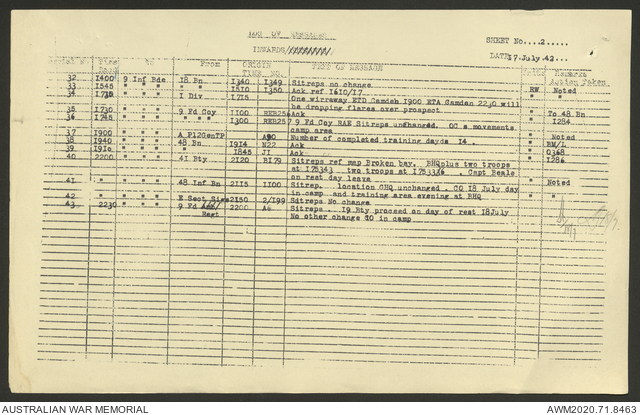 LOG OF MESSAGES
SHEET No....2.....
INWARDS/
DATE 17 July .42...
Serial No. Time To From ORIGIN TEXT OF MESSAGE Remarks
TIME NO. Action Taken
32 I400 9 Inf Bde 18 Bn I340 I349 Sitreps no change.
33 I545 " " " " " I5I0 I350 Ack ref 1610/I7 RW Noted
34 I7 " " " I Div I715 One wirraway ETD Camden I900 ETA Camden 2230 will
be dropping flares over prospect To 48 Bn
35 I730 " " " 9 Fd Coy II00 REB256 Ack I284
36 I745 " " " " " " I300 REB257 9 Fd Coy RAE Sitreps unchanged. OC a movements
camp area
37 I900 " " " A PI2GenTP A90 Number of completed training days I4 .. Noted
38 I940 " " " 48 Bn I9I4 N22 Ack RM/L
39 I9I0 " " " " I845 JI Ack 0368
40 2200 " " " 4I Bty 2I20 BI79 Sitreps ref map Broken bay. BHQ plus two troops I286
at I75343 two troops at I753346 . Capt Beale
on rest day leave
41 " " " 48 Inf Bn 2II5 II00 Sitrep. location CHQ unchanged. CO 18 July day Noted
in camp and training area evening at BHQ
42 " " " E Sect Sigs 2I50 2/I99 Sitreps No change
43 2230 " " " 9 Fd Regt 2200 A6 Sitreps . . I9 Bty proceed on day of rest I8July
No other change IO in camp
AUSTRALIAN WAR MEMORIAL
AWM2020.71.8463